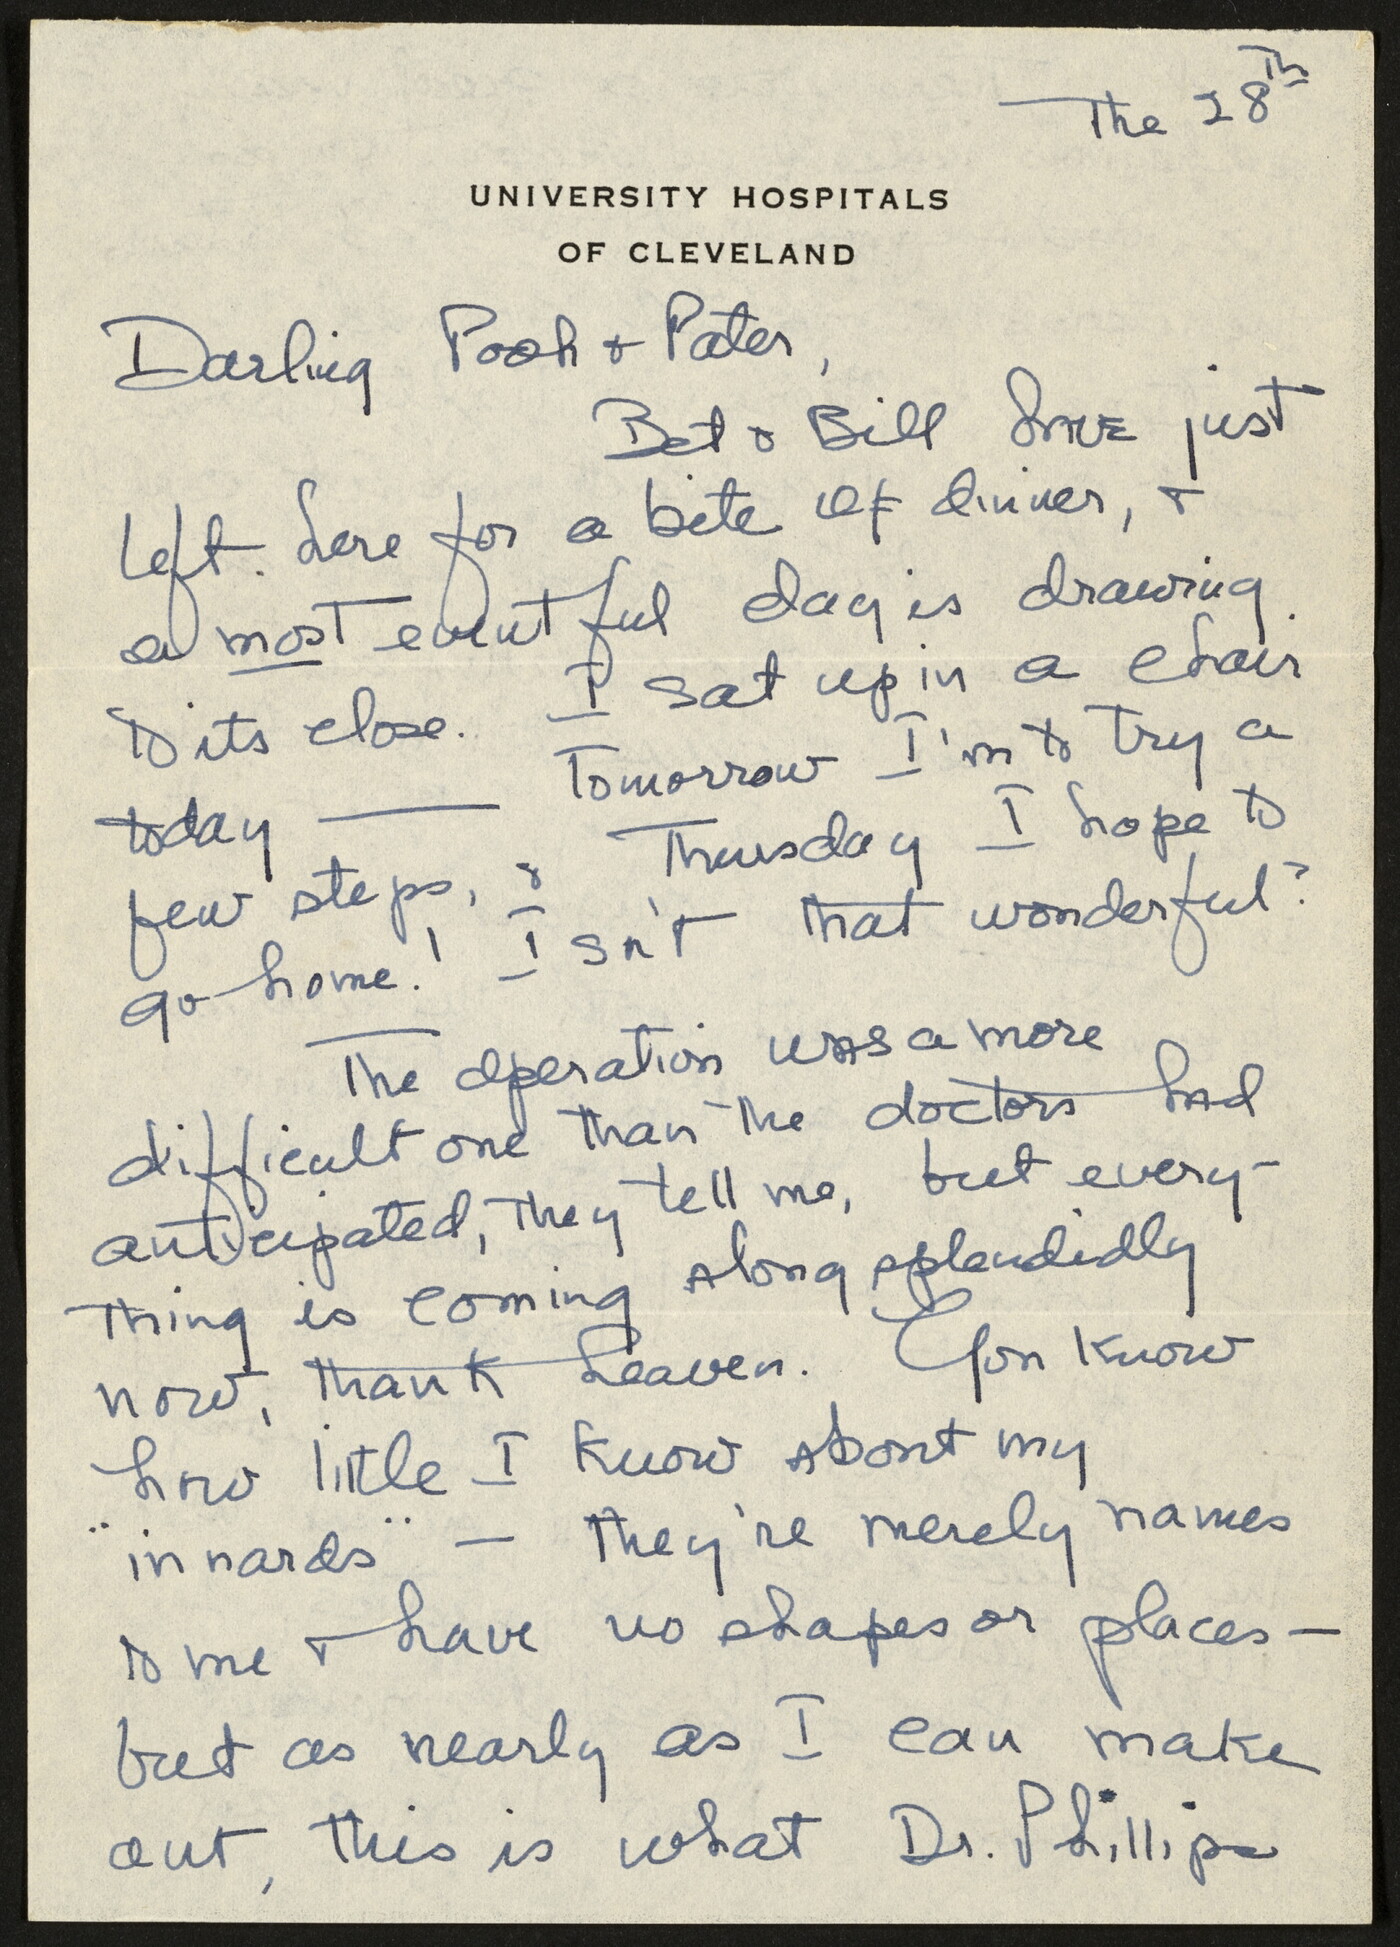 The 28th
UNIVERSITY HOSPITALS
OF CLEVELAND
Darling Pooh & Pater,
Bet & Bill have just
left here for a bite of dinner, &
a most eventful day is drawing
to its close. I sat up in a chair
today — Tomorrow I'm to try a
few steps, & Thursday I hope to
go home! Isn't that wonderful?
The operation was a more
difficult one than the doctors had
anticipated, they tell me, but every-
thing is coming along splendidly
now, thank heaven. You know
how little I know about my
"innards" — they're merely names
to me & have no shapes or places —
but as nearly as I can make
out, this is what Dr. Phillips